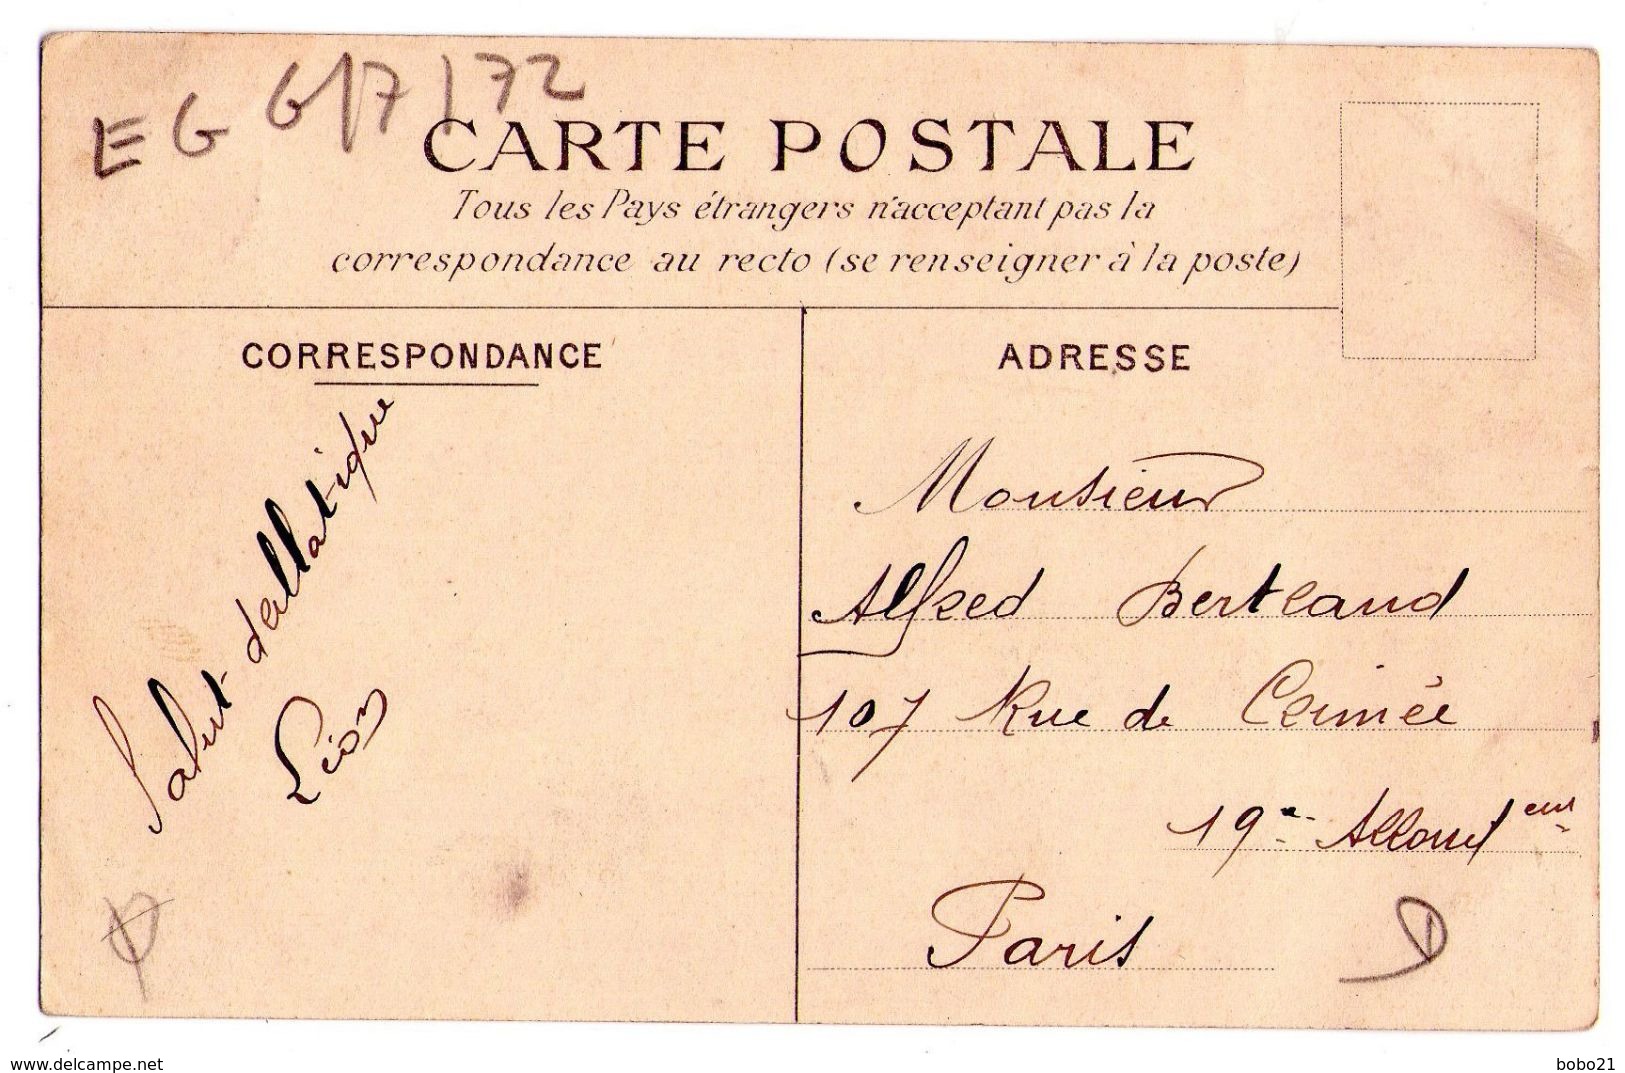 EG 6/7/72
CARTE POSTALE
Tous les Pays étrangers n'acceptant pas la
correspondance au recto (se renseigner à la poste)
CORRESPONDANCE
Salut dallatique
Léon
ADRESSE
Monsieur
Alfred Bertrand
107 Rue de Crimée
19e
Paris
www.delcampe.net
bobo21